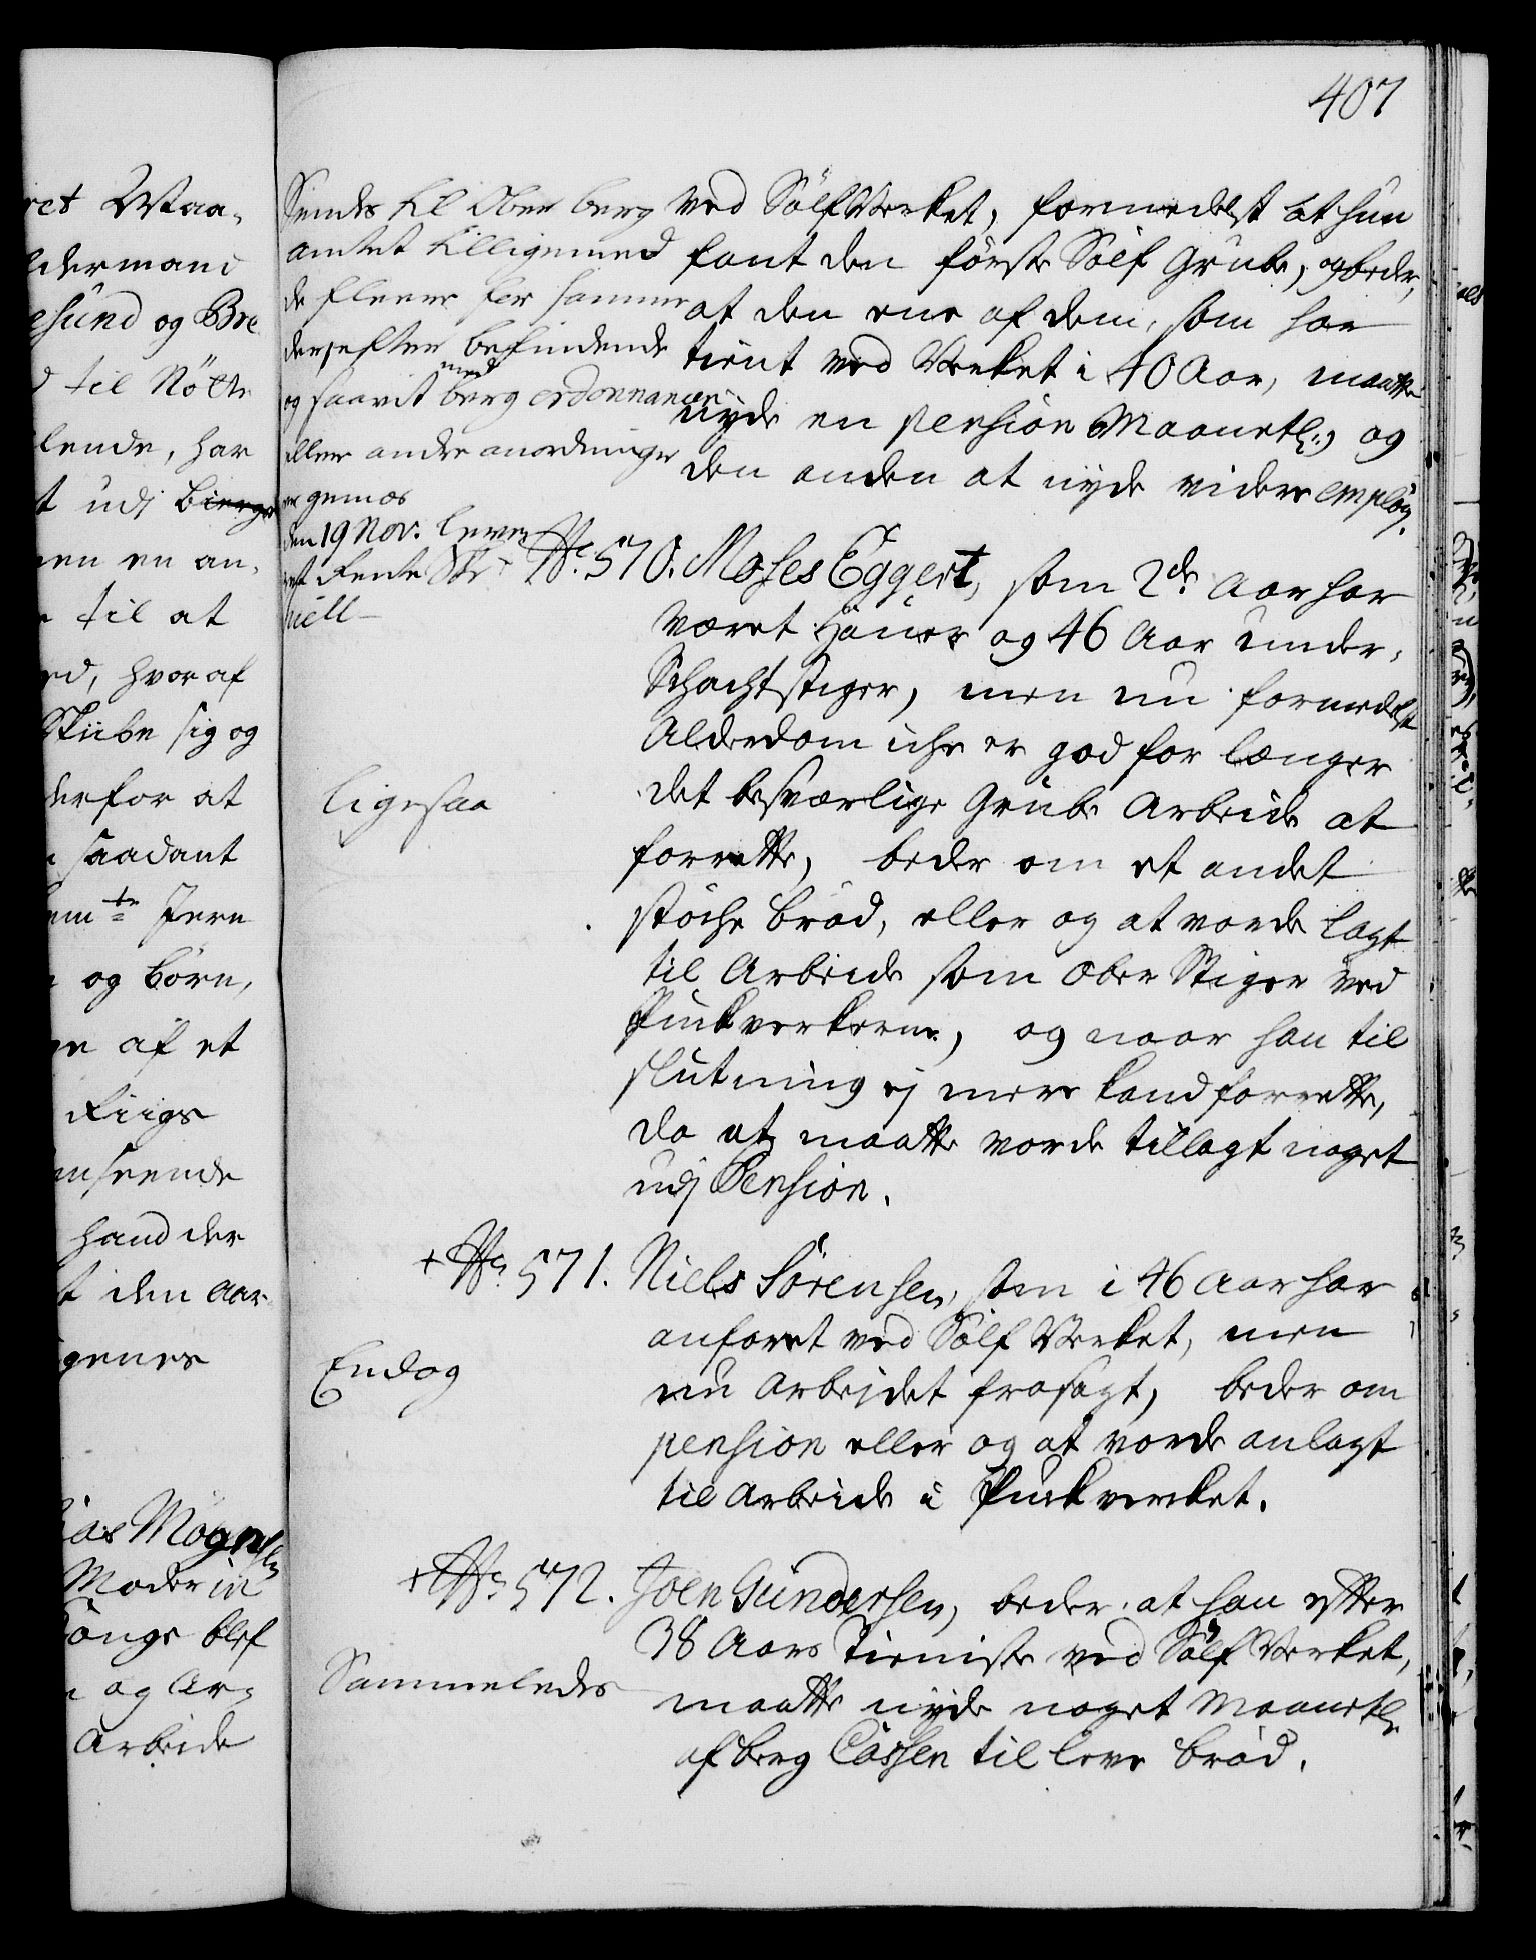 407
ret Waa-
ldermand
esund og Bre
d til Nötte
lende, har
t udj bierge
nen en an-
til at
ed, hvoraf
Skiibe sig og
derfor at
saadant
em te Jern
og börn,
ge af et
Riigs
nseende
hand der
t den Aar-
genes
ias Mogensen
Moder in
gange blef
og Ar-
Arbeide
Sendes til Ober berg
amtet tilligemed
de fleere for samme
derefter befindende
og saavit med berg ordonnancen
eller andre anordninger
er gemæs
den 19 Nov. lever
et Rente Skr:
iell
ved SölfVerket, formedelst at hun
fant den förste Sölf Grube, og beder,
at den ene af dem, som har
tient ved Verket i 40 Aar, maatte
nyde en pension Maanetl:, og
den anden at nyde videre employ.
No. 570. Moses Eggert, som 2de Aar har
været Häuer og 46 Aar under-
Schachtstiger, men nu formedelst
Alderdom iche er god for længer
det besværlige Grube Arbeide at
forrette, beder om et andet
støche bröd, eller og at vorde lagt
til Arbeide som Ober Stiger ved
Puckverkerne, og naar han til
slutning ej mere kand forrette,
da at maatte vorde tillagt noget
udj Pension.
ligesaa
+ No. 571. Niels Sörensen, som i 46 Aar har
anfaret ved Sölf Verket, men
nu Arbejdet frasagt, beder om
pension eller og at vorde anlagt
til Arbeide i Puckverket.
Endog
+ No. 572. Joen Gundersen, beder at han efter
38 Aars Tieniste ved Sölf Verket,
maatte nyde noget Maanetl:
af berg Cassen til leve bröd.
Sammeledes